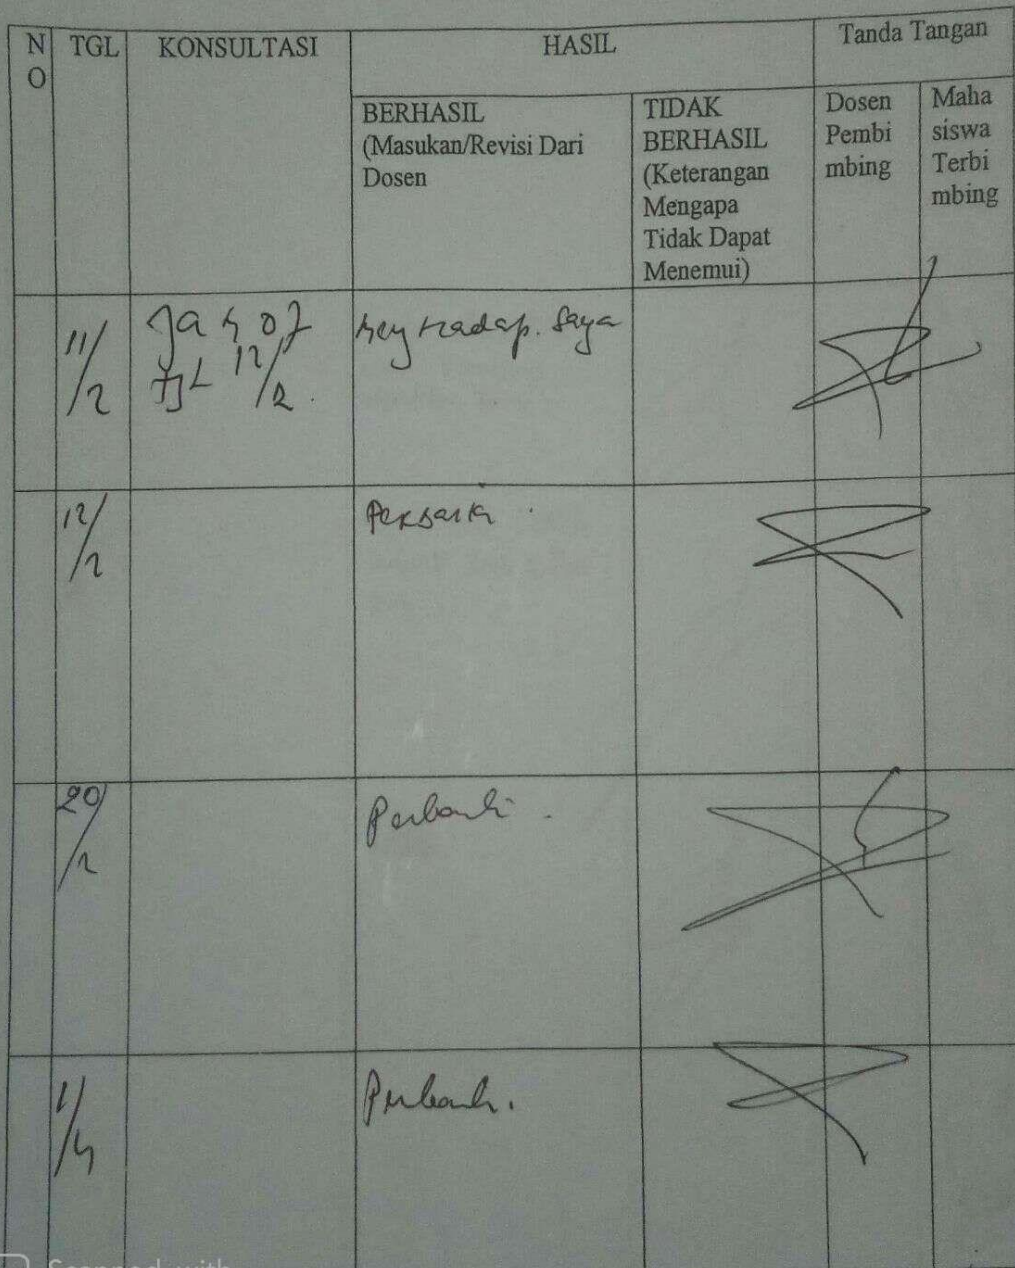 NO
TGL
KONSULTASI
HASIL
Tanda Tangan
BERHASIL
(Masukan/Revisi Dari
Dosen
TIDAK
BERHASIL
(Keterangan
Mengapa
Tidak Dapat
Menemui)
Dosen
Pembi
mbing
Maha
siswa
Terbi
mbing
11/2
Tgl 12/2.
Saya
12/2
Perbaiki.
20/2
Perbaiki.
1/4
Perbaiki.
Scanned with